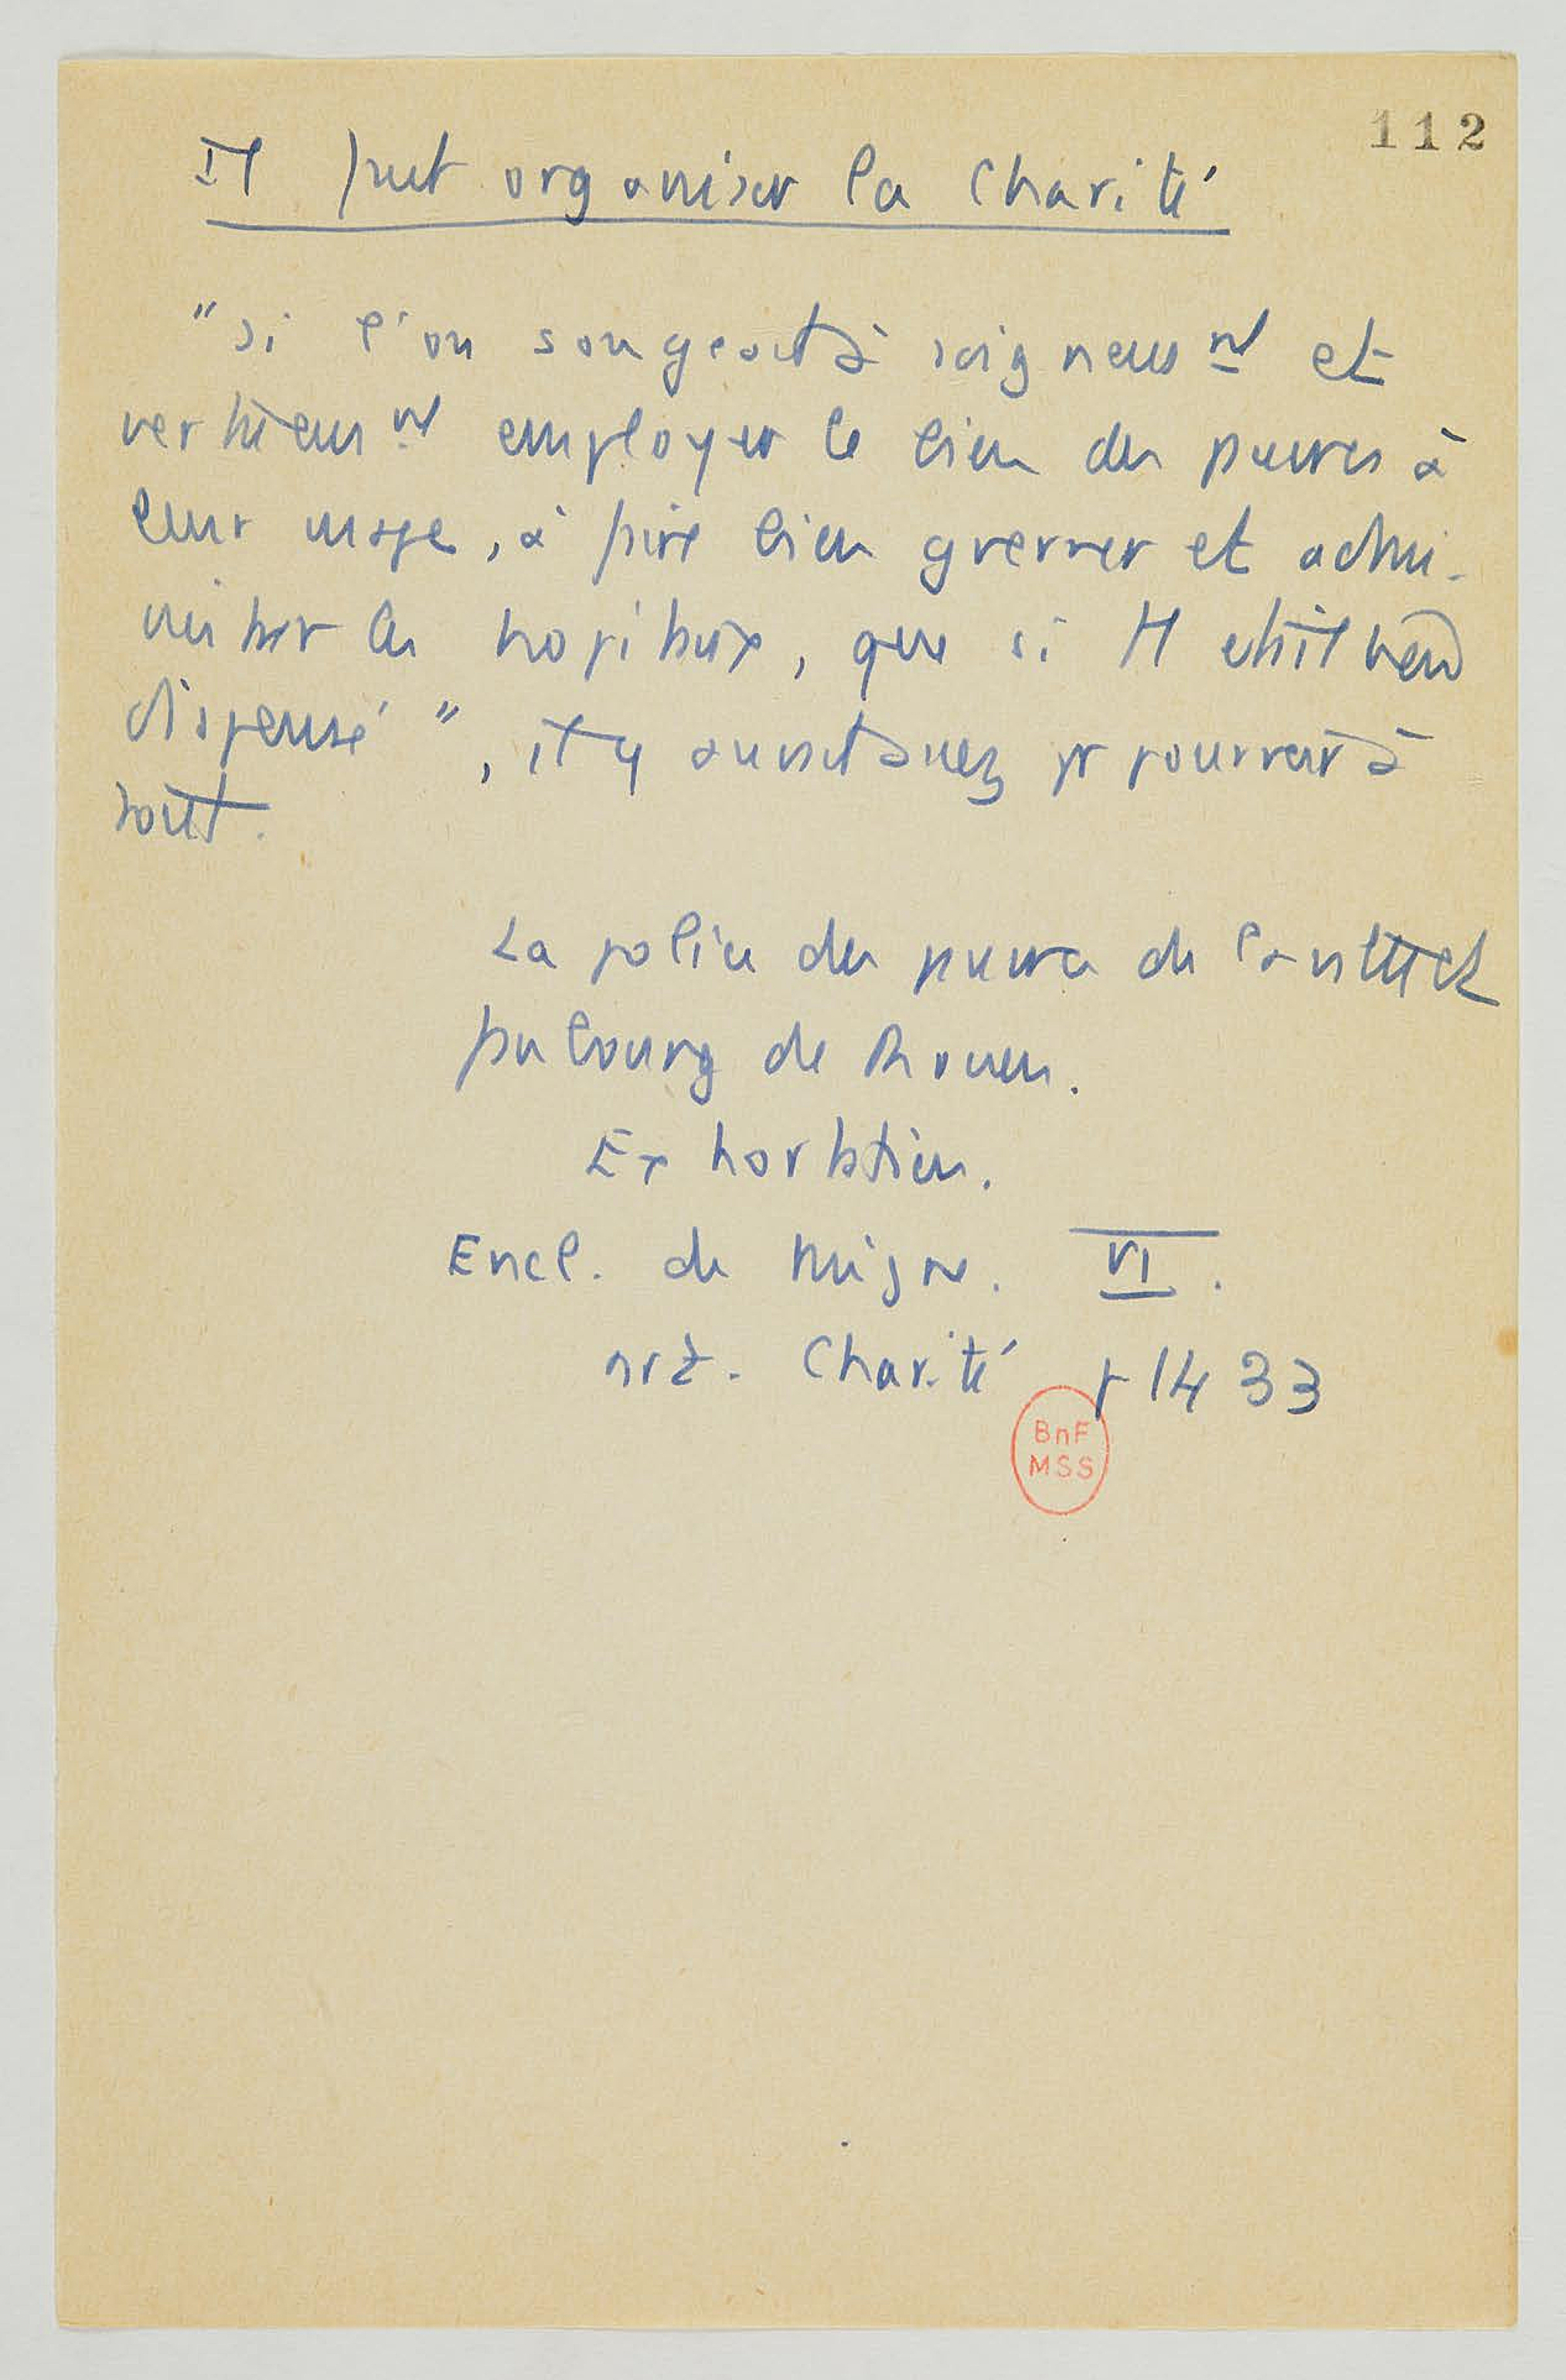 112
Il faut organiser la charité
"si l'on songeait à soigneusnt et
vertueusnt employer le bien des pauvres à
leur usage, à faire bien gouverner et admi-
nistrer les hopitaux, que si Il était bien
dispensé", il y aurait assez pr pourvoir à
tout.
La police des pauvres de
faubourg de Rouen.
Exhortation.
Encl. de Migne. VI.
art. Charité p 1433
BnF
MSS